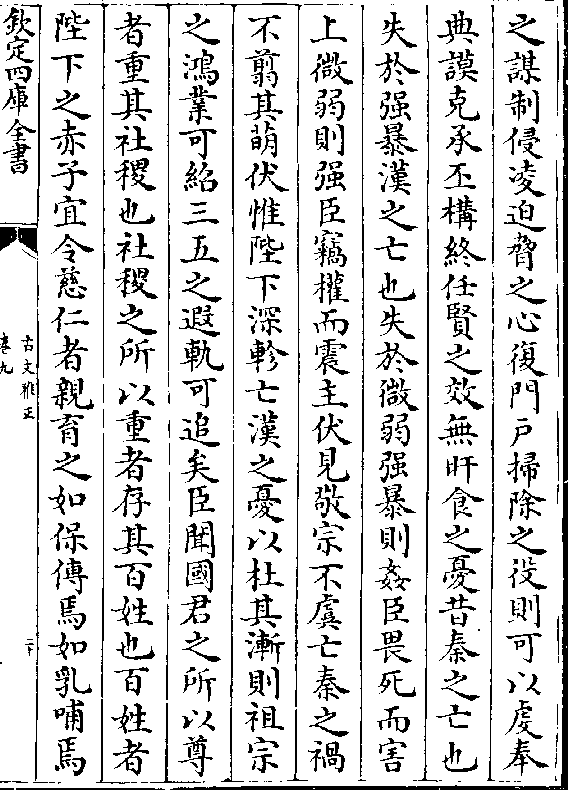 之謀制侵凌迫脅之心復門戸掃除之役則可以虔奉
典謨克承丕構終任賢之效無旰食之憂昔秦之亡也
失於强暴漢之亡也失於微弱强暴則姦臣畏死而害
上微弱則强臣竊權而震主伏見敬宗不虞亡秦之禍
不翦其萌伏惟陛下深軫亡漢之憂以杜其漸則祖宗
之鴻業可紹三五之遐軌可追矣臣聞國君之所以尊
者重其社稷也社稷之所以重者存其百姓也百姓者
陛下之赤子宜令慈仁者親育之如保傅焉如乳哺焉
欽定四庫全書
古文雅正
卷九